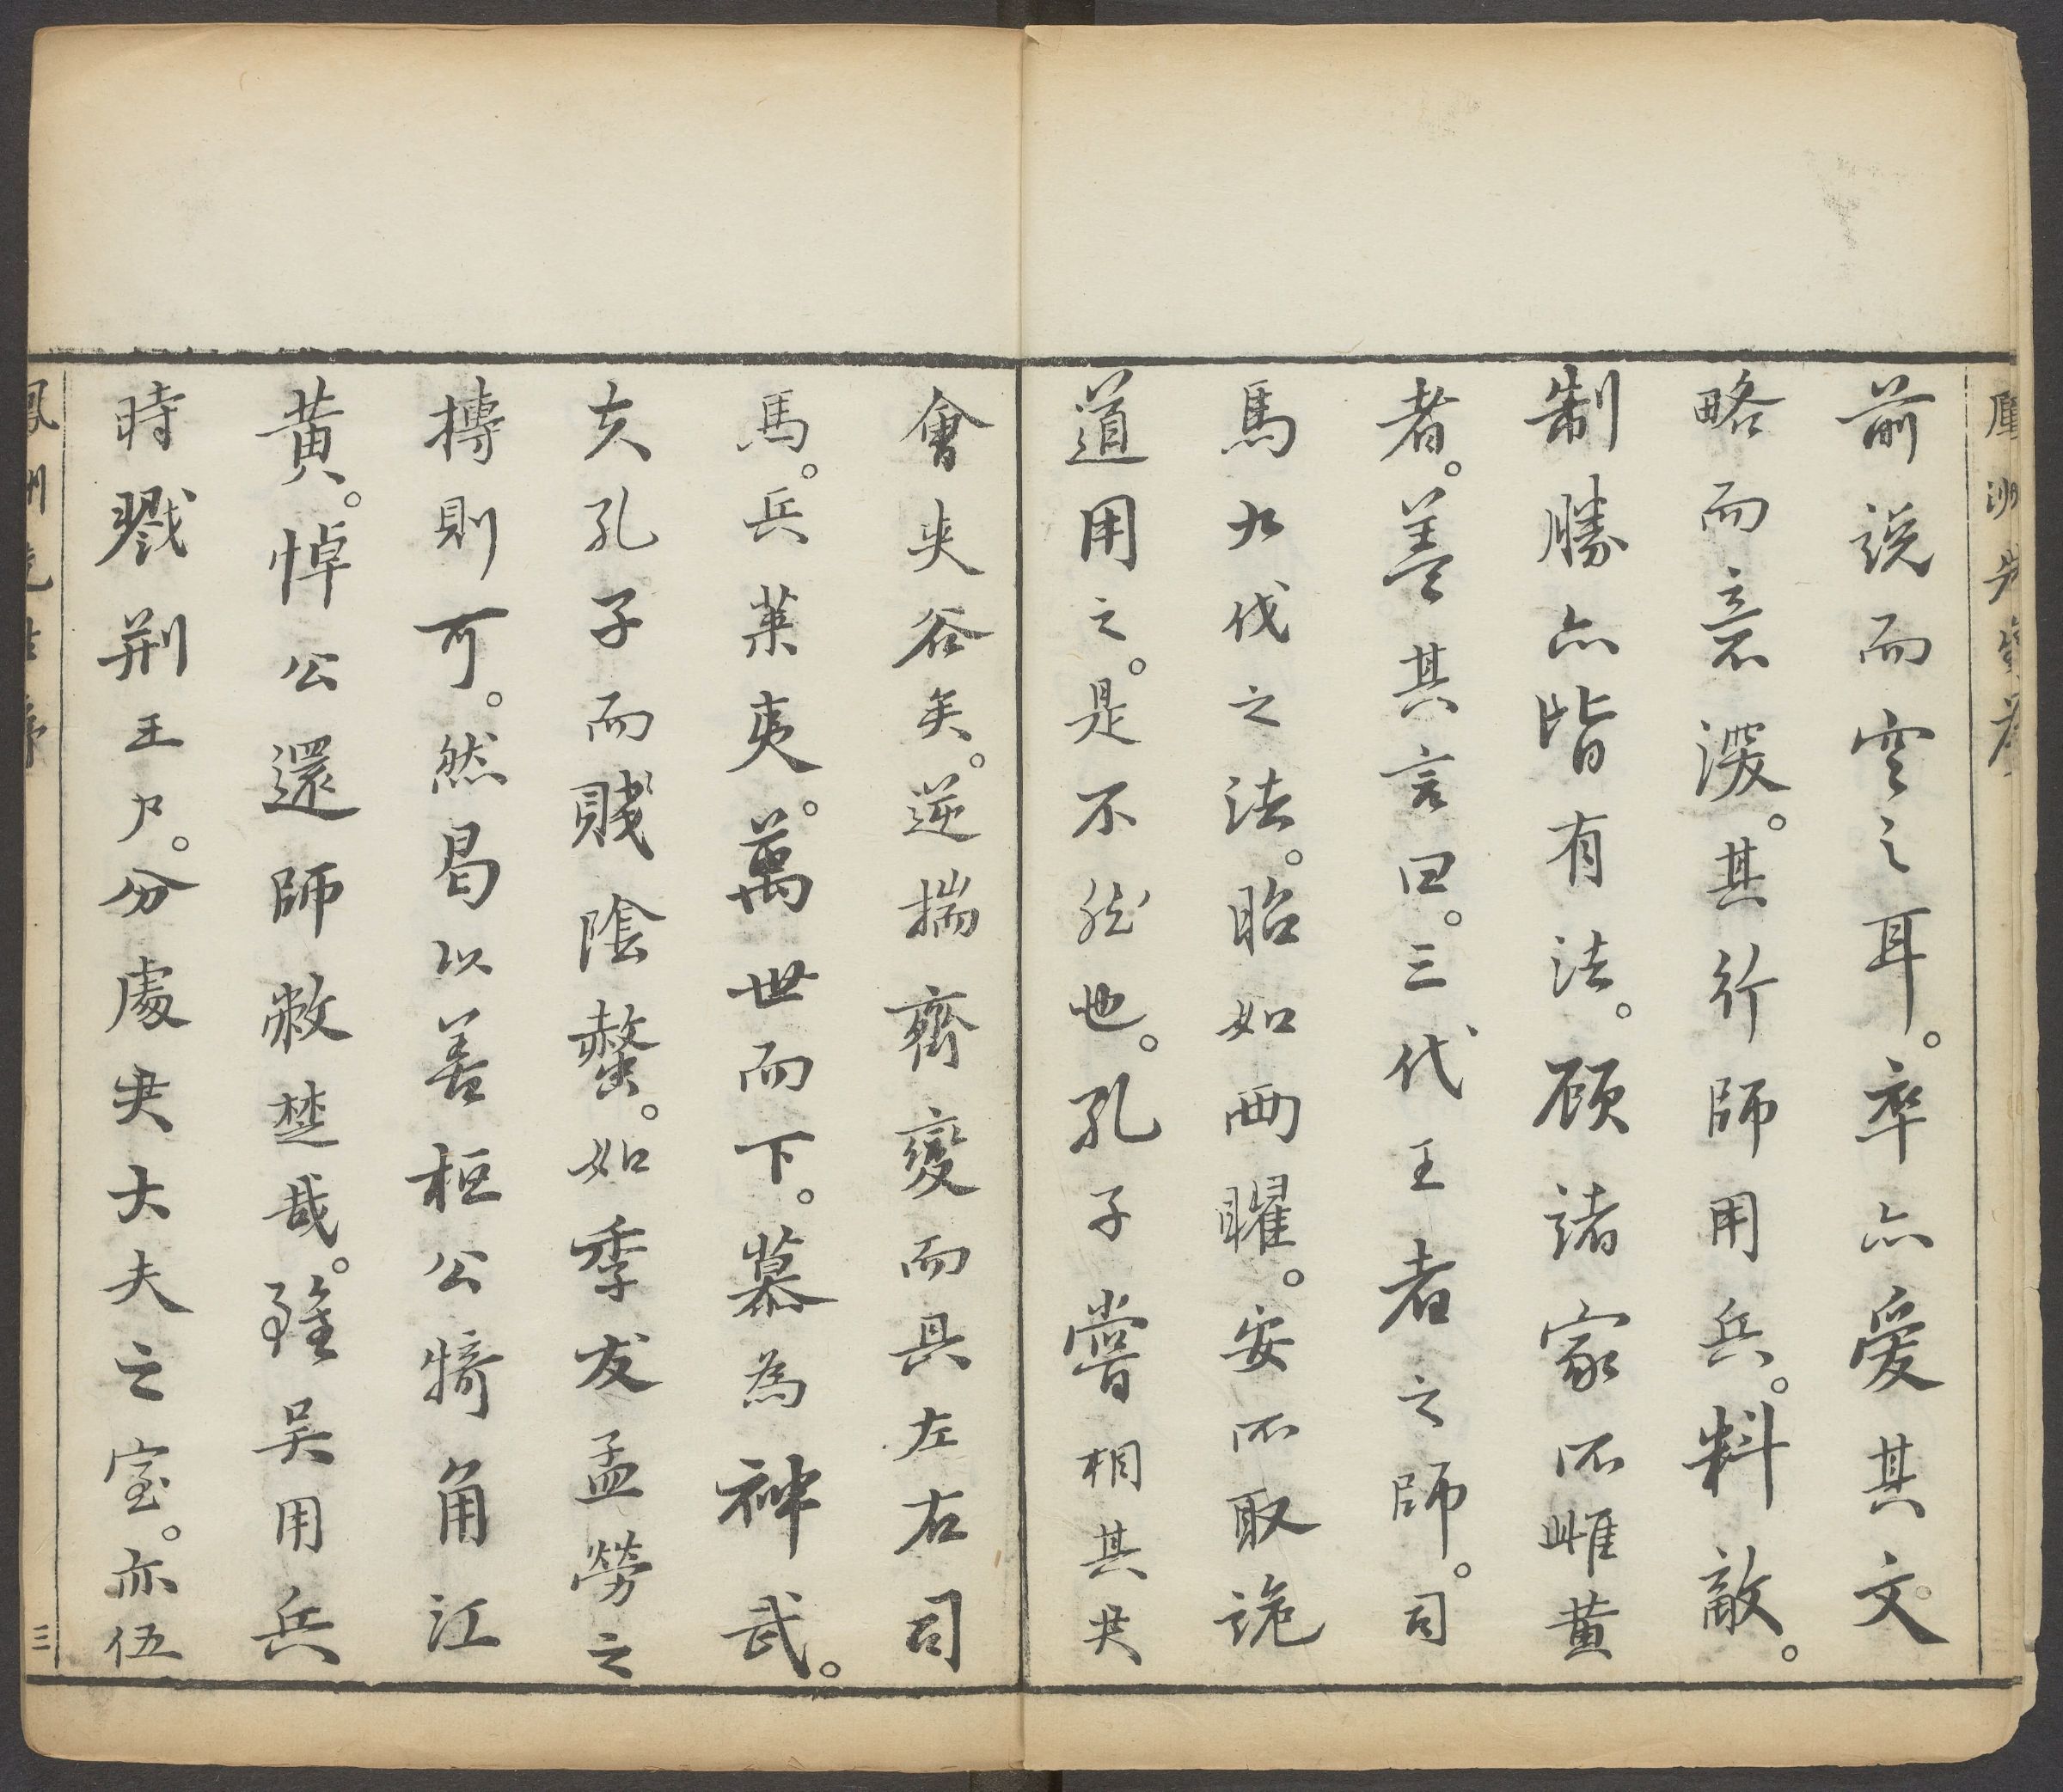 前説而空之耳。率亦爰其文
略而意深。其行師用兵。料敵。
制勝亦皆有法。顧諸家不雌黄
者。善其言曰。三代王者之師。司
馬九伐之法。昭如兩曜。安所取詭
道用之。是不然也。孔子嘗相其夾
會夾谷矣。逆揣齊變而具左右司
馬。兵萊夷。萬世而下。慕為神武。
夫孔子而賤陰螫。如季友孟勞之
摶則可。然曷以善桓公犄角江
黄。悼公還師敝楚哉。雖吴用兵
時戮荆王尸。分處夫大夫之室。亦伍
鳳洲先生
三